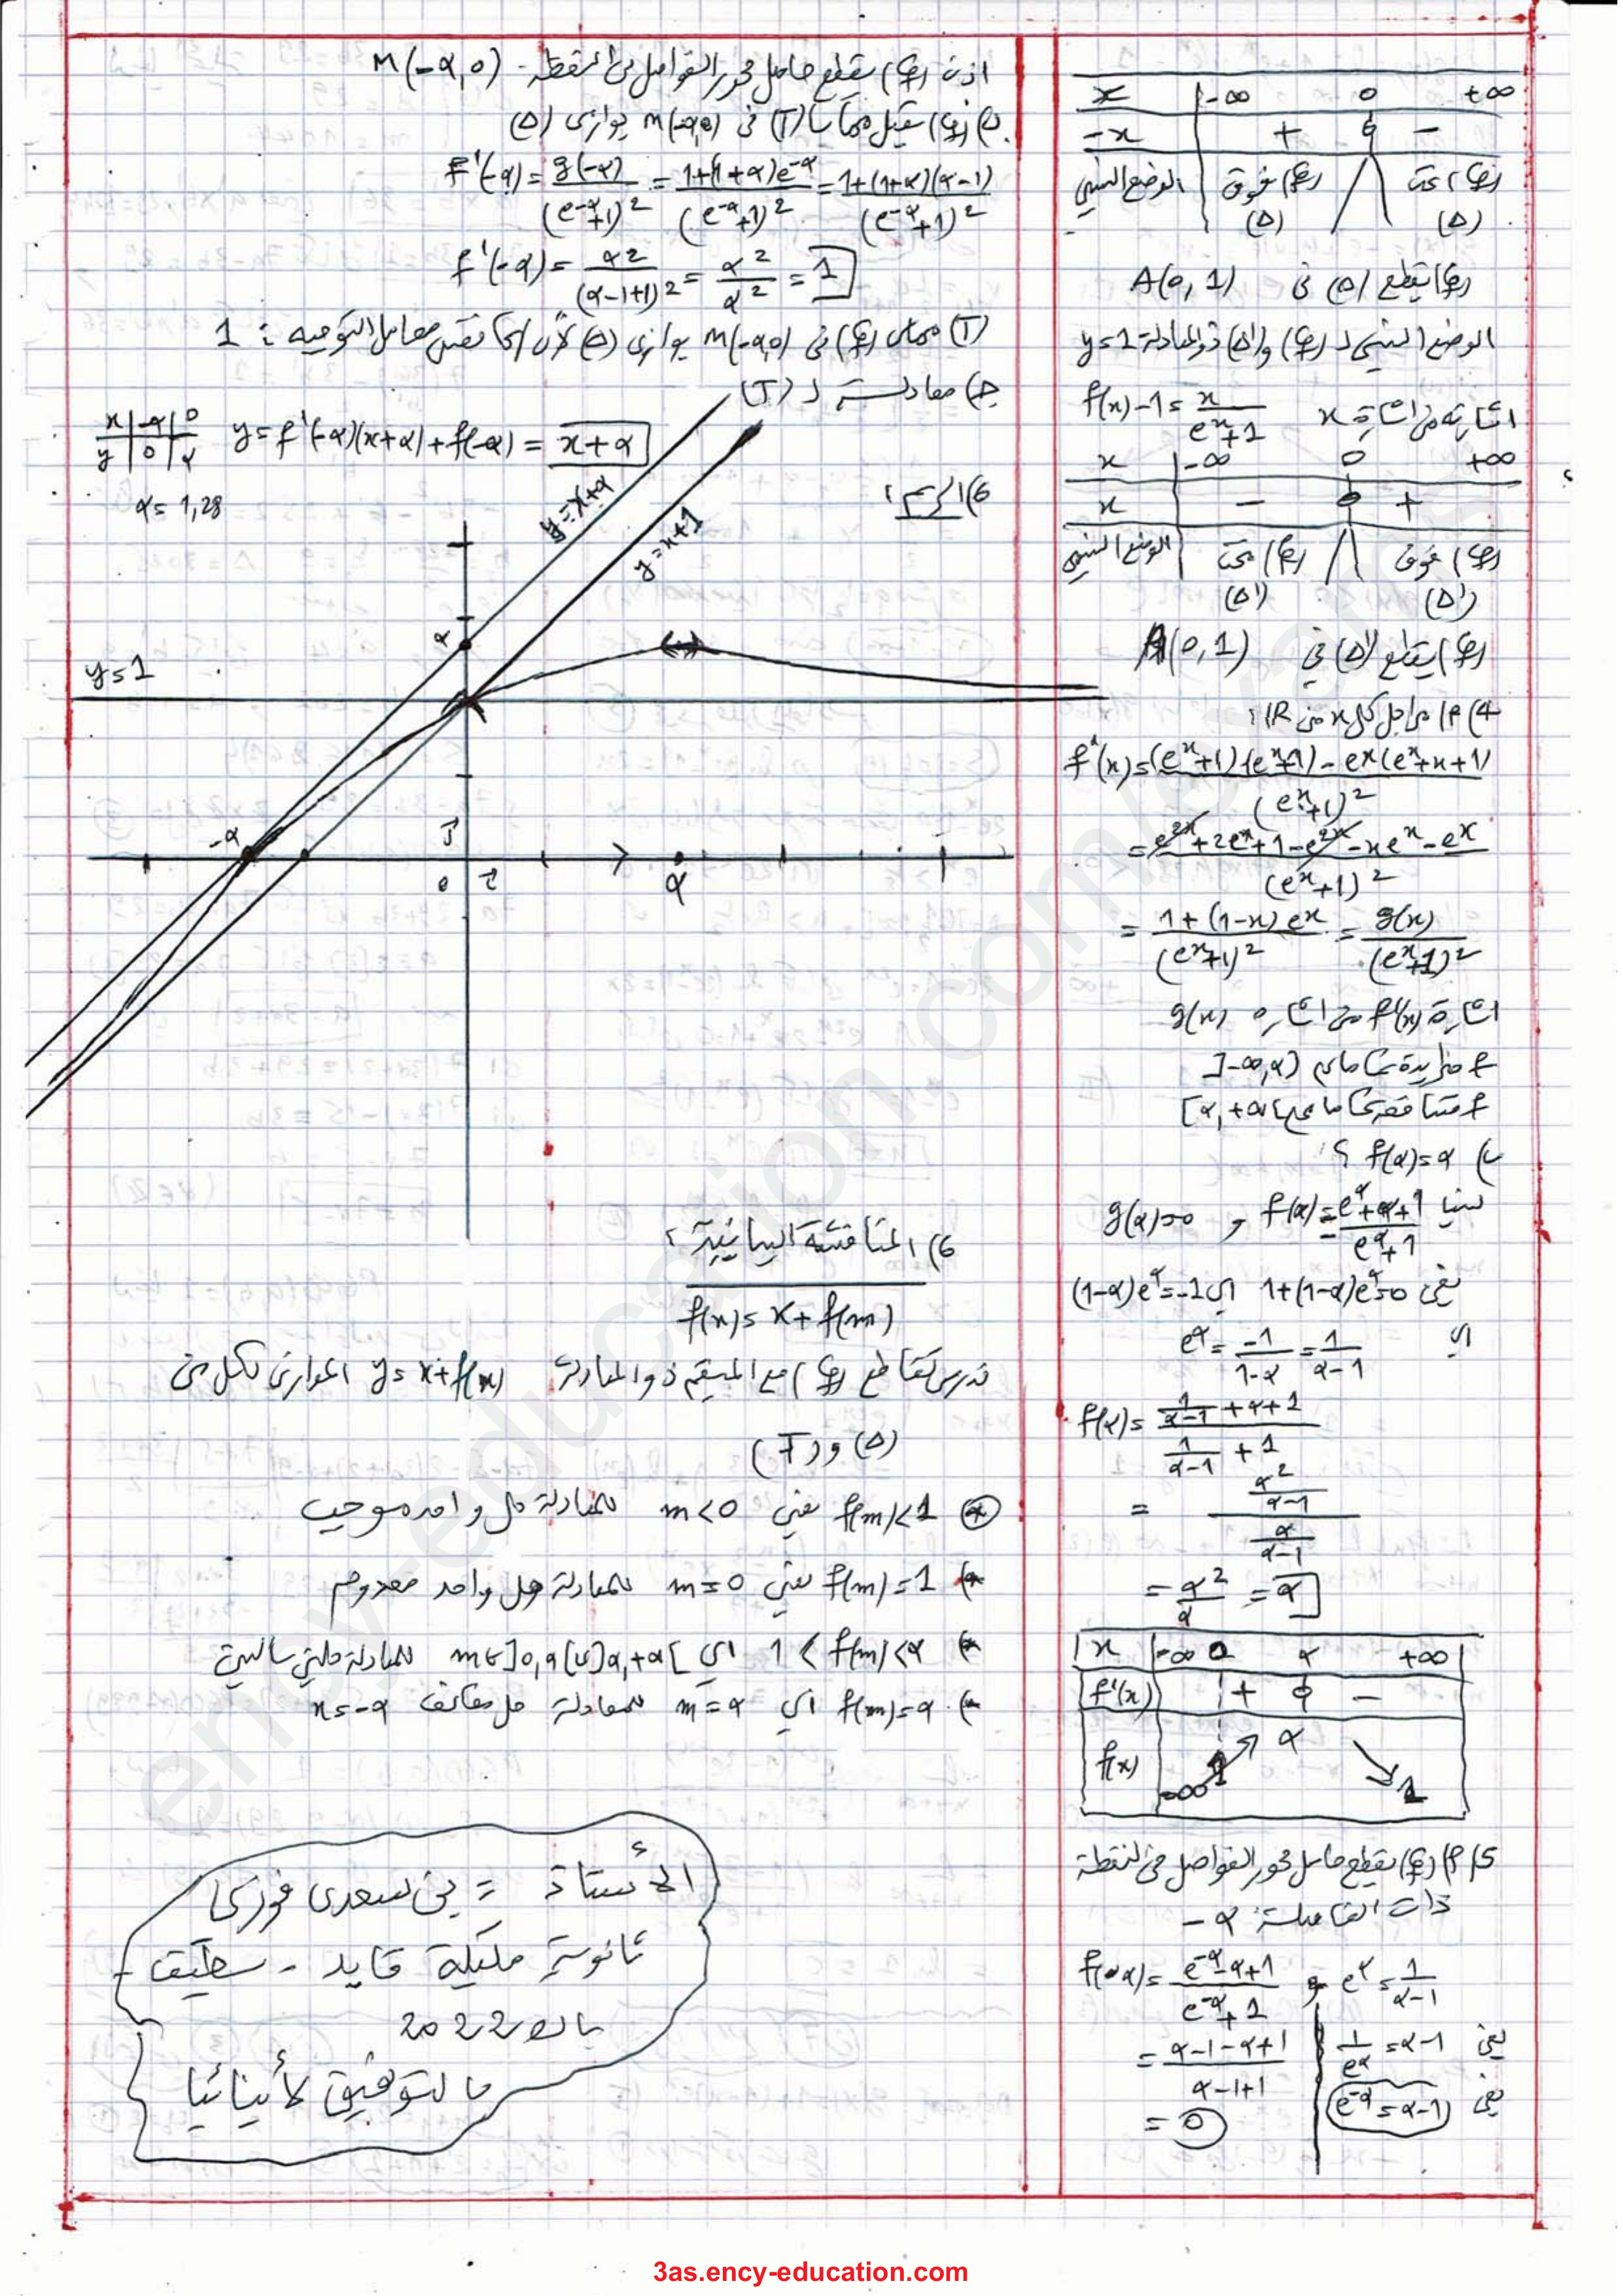 x | -∞ 0 +∞
-x | + 0 -
الوضع النسبي | (Cf) فوق (Δ) | (Cf) تحت (Δ)
(Cf) يقطع (Δ) في A(0,1)
الوضع النسبي لـ (Cf) و (Δ') ذو المعادلة y=1
f(x)-1 = x/(e^x+1) اشارته من اشارة x
x | -∞ 0 +∞
x | - 0 +
الوضع النسبي | (Cf) تحت (Δ') | (Cf) فوق (Δ')
(Cf) يقطع (Δ') في A(0,1)
4) أ) من اجل كل x من IR:
f'(x) = ((e^x+1)(e^x+1) - e^x(e^x+x+1))/(e^x+1)^2
= (e^2x+2e^x+1-e^2x-xe^x-e^x)/(e^x+1)^2
= (1+(1-x)e^x)/(e^x+1)^2 = g(x)/(e^x+1)^2
اشارة f'(x) من اشارة g(x)
f متزايدة تماما على ]-∞,α]
f متناقصة تماما على [α,+∞[
ب) f(α)=α ؟
لدينا f(α) = (e^α+α+1)/(e^α+1) و g(α)=0
يعني 1+(1-α)e^α=0 اي (1-α)e^α=-1
اي e^α = -1/(1-α) = 1/(α-1)
f(α) = (1/(α-1)+α+1)/(1/(α-1)+1)
= (α^2/(α-1))/(α/(α-1))
= α^2/α = α
x | -∞ 0 α +∞
f'(x) | + 0 -
f(x) | -∞ 1 α 1
5) أ) (Cf) يقطع حامل محور الفواصل في النقطة
ذات الفاصلة -α
f(-α) = (e^-α-α+1)/(e^-α+1) و e^α = 1/(α-1)
= (α-1-α+1)/(α-1+1) يعني 1/e^α = α-1
= 0 يعني e^-α = α-1
اذن (Cf) يقطع حامل محور الفواصل في النقطة M(-α,0)
ب) (Cf) يقبل مماسا (T) في M(-α,0) يوازي (Δ)
f'(-α) = g(-α)/(e^-α+1)^2 = (1+(1+α)e^-α)/(e^-α+1)^2 = (1+(1+α)(α-1))/(e^-α+1)^2
f'(-α) = α^2/(α-1+1)^2 = α^2/α^2 = 1
(T) مماس (Cf) في M(-α,0) يوازي (Δ) لأن لهما نفس معامل التوجيه : 1
ج) معادلة لـ (T)
y = f'(-α)(x+α)+f(-α) = x+α
x | -α | 0
y | 0 | α
α = 1,28
6) الرسم:
y=x+α
y=x+1
α
y=1
-α
j
0 i
α
6) المناقشة البيانية:
f(x) = x + f(m)
ندرس تقاطع (Cf) مع المستقيم ذو المعادلة y= x+f(m) الموازي لكل من
(Δ) و (T)
* f(m)<1 يعني m<0 للمعادلة حل واحد موجب
* f(m)=1 يعني m=0 للمعادلة حل واحد معدوم
* 1<f(m)<α اي m∈]0,α[∪]α,+∞[ للمعادلة حلين سالبين
* f(m)=α اي m=α للمعادلة حل مضاعف x=-α
الأستاذ = بن سعدي فوزي
ثانوية مليكة قايد - سطيف
باك 2022
بالتوفيق لأبنائنا
ency-education.com/exams
3as.ency-education.com